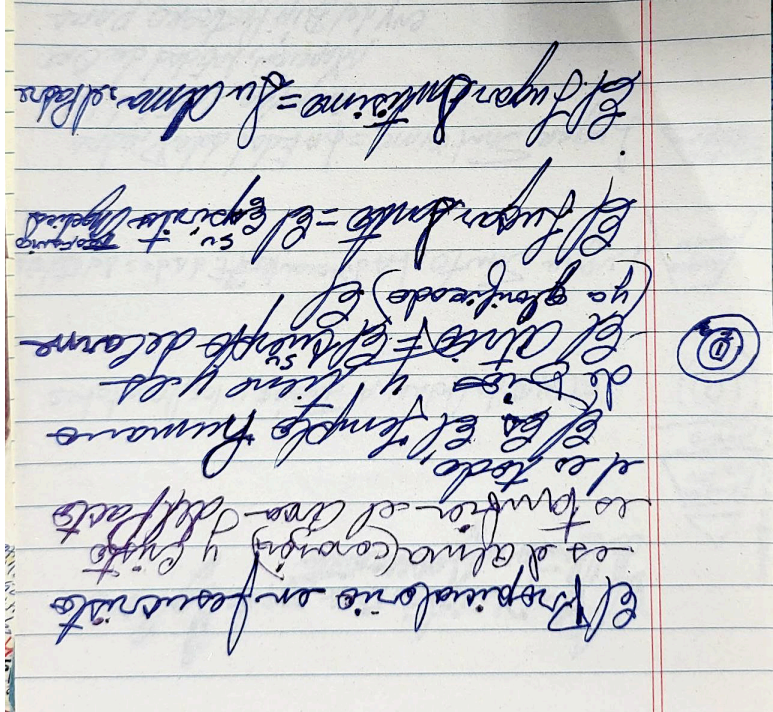 El Propiciatorio en Jesucristo
es el alma (corazón) y Cristo
es también el Arca del Pacto
el es todo,
El Es El Templo humano
de Dios y tiene y es
El atrio = El su cuerpo de carne
(ya glorificado) El
El Lugar Santo = El su Espíritu t Angelical
El Lugar Santísimo = Su Alma el Padre